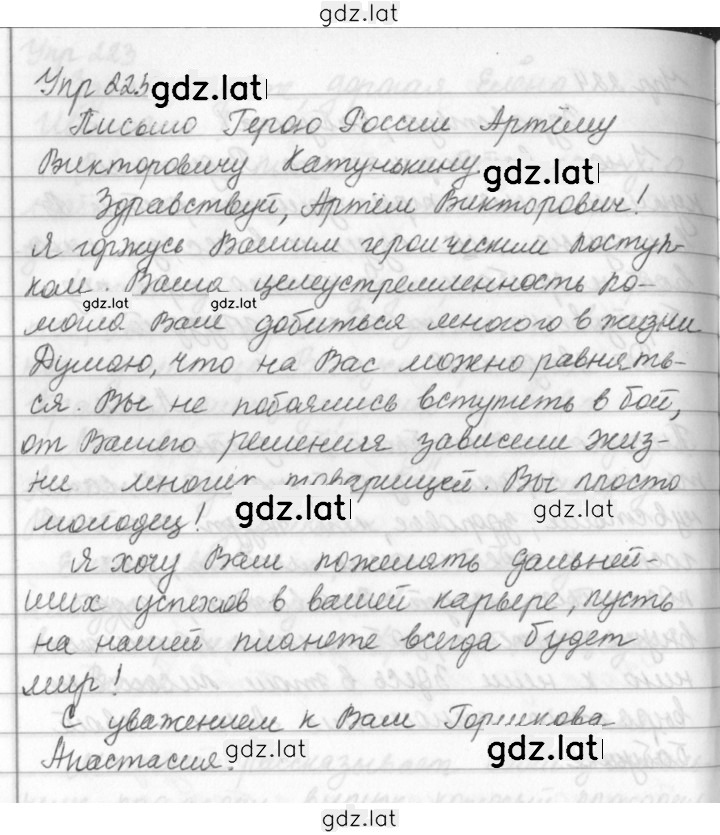 gdz.lat
Упр 223 gdz.lat
Письмо Герою России Артёму
Викторовичу Катунькину gdz.lat
Здравствуй, Артём Викторович!
Я горжусь Вашим героическим поступ-
ком. Ваша целеустремленность по-
gdz.lat gdz.lat
могла Вам добиться многого в жизни
Думаю, что на Вас можно равнять-
ся. Вы не побоялись вступить в бой,
от Вашего решения зависели жиз-
ни многих товарищей. Вы просто
молодец! gdz.lat gdz.lat
Я хочу Вам пожелать дальней-
ших успехов в вашей карьере, пусть
на нашей планете всегда будет
мир!
С уважением к Вам Горшкова
Анастасия. gdz.lat gdz.lat
gdz.lat